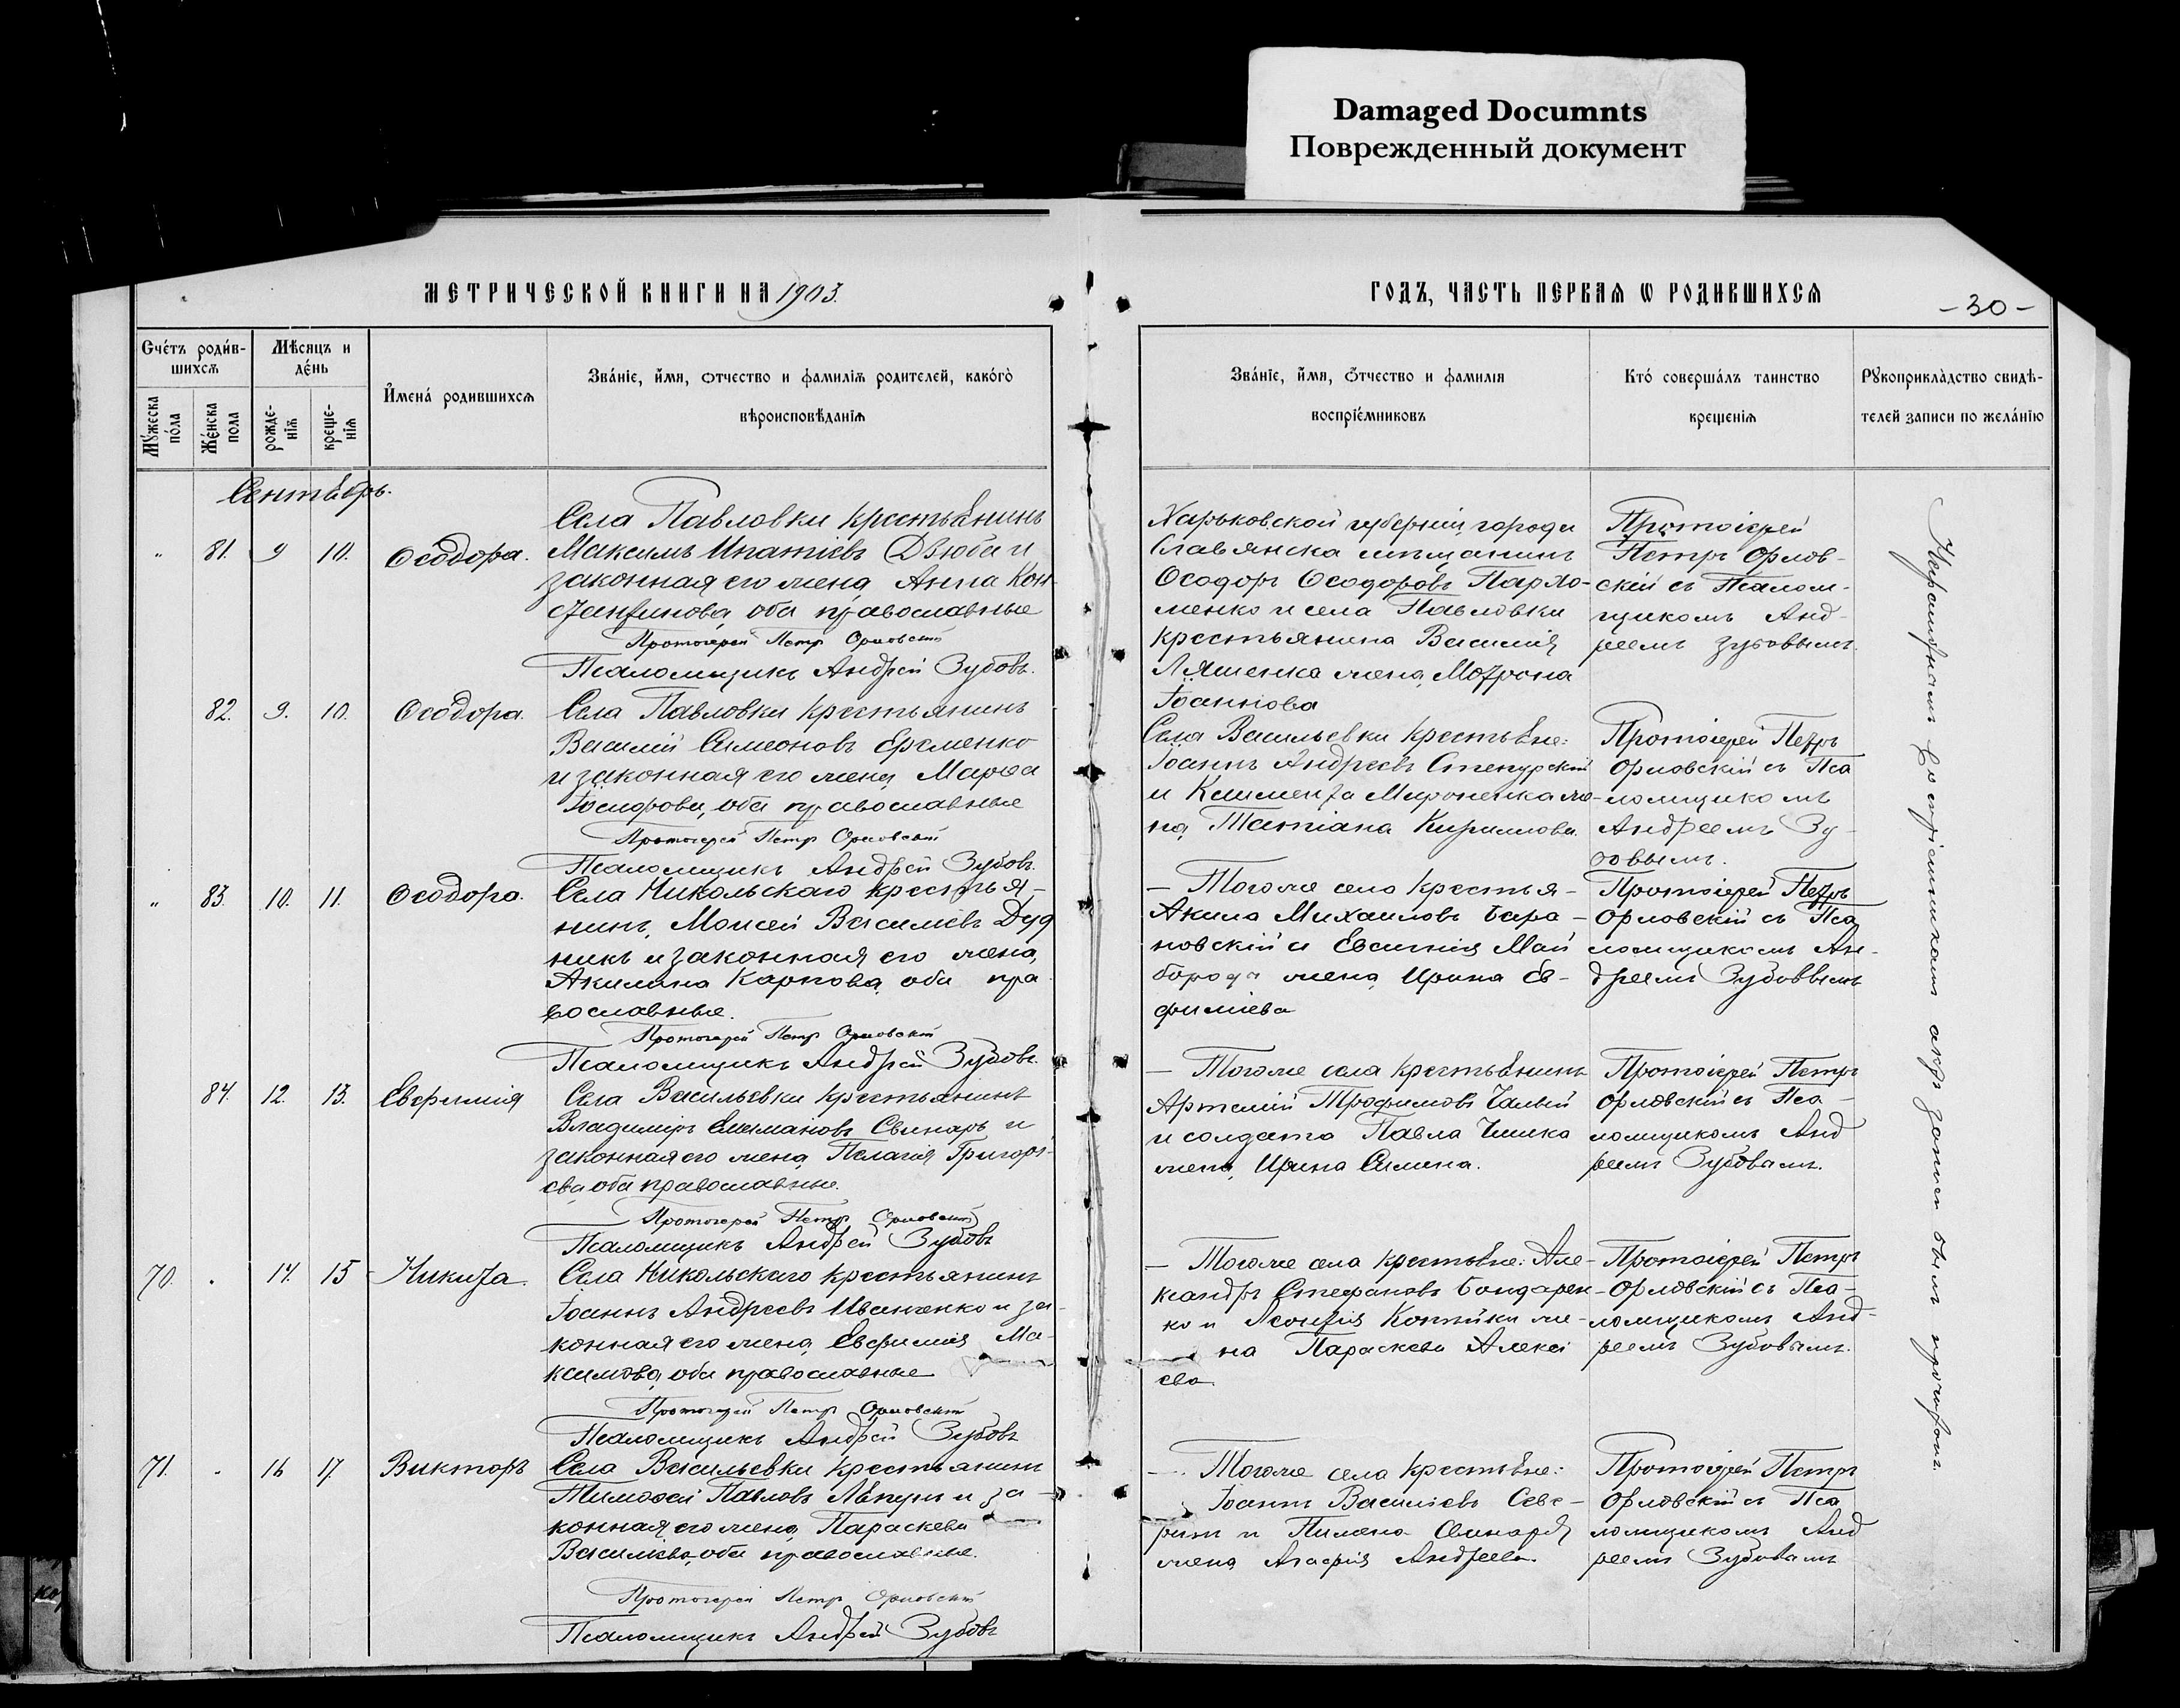 Damaged Documnts
Поврежденный документ
МЕТРИЧЕСКОЙ КНИГИ НА 1903.
ГОДЪ, ЧАСТЬ ПЕРВАЯ Ѡ РОДИВШИХСЯ
-30-
Счетъ родив-
шихся
Мѣсяцъ и
день
Имена родившихся
Званіе, имя, отчество и фамилія родителей, какого
вѣроисповѣданія
Мужеска
пола
Женска
пола
рожде-
нія
креще-
нія
Званіе, имя, отчество и фамилія
воспріемниковъ
Кто совершалъ таинство
крещенія
Рукоприкладство свидѣ-
телей записи по желанію
Сентябрь.
" 81. 9 10. Ѳеодора.
Села Павловки крестьянинъ
Максимъ Ипатіевъ Дзюба и
законная его жена, Анна Кон-
стантинова, оба православные
Протоіерей Петр Орловскій
Псаломщикъ Андрей Зубовъ.
Харьковской губерніи, города
Славянска мѣщанинъ
Ѳеодоръ Ѳеодоровъ
менко и села Павловки
крестьянина Василія
Ляшенка жена, Мотрона
Іоаннова
Протоіерей
Петръ Орлов-
скій съ Псалом-
щикомъ Анд-
реемъ Зубовымъ.
82. 9. 10. Ѳеодора.
Села Павловки крестьянинъ
Василій Симеоновъ Еременко
и законная его жена, Марѳа
Іосифова, оба православные
Протоіерей Петр Орловскій
Псаломщикъ Андрей Зубовъ.
Села Васильевки крестьяне:
Іоаннъ Андреевъ
и Климента Мироненка же-
на, Татіана Кириллова.
Протоіерей Петръ
Орловскій съ Пса
ломщикомъ
Андреемъ Зу-
бовымъ.
" 83. 10. 11. Ѳеодора.
Села Никольскаго крестья-
нинъ, Моисей Василіевъ Дуд
никъ и законная его жена,
Акилина Карпова, оба пра
вославные.
Протоіерей Петр Орловскій
Псаломщикъ Андрей Зубовъ.
— Тогоже села крестья-
Акила Михаиловъ Бара-
новскій и Май
борода жена, Ирина Ев-
фиміева
Протоіерей Петръ
Орловскій съ Пса
ломщикомъ Ан-
дреемъ Зубовымъ
84. 12. 13. Евфимія
Села Васильевки крестьянинъ
Владиміръ Свинарь и
законная его жена, Пелагія Григорі-
ева, оба православные.
Протоіерей Петр Орловскій
Псаломщикъ Андрей Зубовъ
— Тогоже села крестьянинъ
Артемій Трофимовъ
и солдата Павла
жена, Ирина
Протоіерей Петръ
Орловскій съ Пса-
ломщикомъ Анд
реемъ Зубовымъ.
70. " 14. 15 Никита.
Села Никольскаго крестьянинъ
Іоаннъ Андреевъ Иваненко и за-
конная его жена, Евфимія Ма-
ксимова, оба православные
Протоіерей Петр Орловскій
Псаломщикъ Андрей Зубовъ
— Тогоже села крестьяне: Але-
ксандръ Стефановъ Бондарен-
ко и Леонтія же-
на Параскева Алексі
ева.
Протоіерей Петръ
Орловскій съ Пса-
ломщикомъ Анд-
реемъ Зубовымъ.
71. " 16 17. Викторъ
Села Васильевки крестьянинъ
Тимоѳей Павловъ и за-
конная его жена, Параскева
Василіева, оба православные.
Протоіерей Петр Орловскій
Псаломщикъ Андрей Зубовъ
— Тогоже села крестьяне:
Іоаннъ Василіевъ Саве-
и Пимена Свинаря
жена, Агафія Андреева.
Протоіерей Петръ
Орловскій съ Пса
ломщикомъ Анд
реемъ Зубовымъ
Неграмотнымъ воспріемникамъ актъ записи былъ прочитанъ.